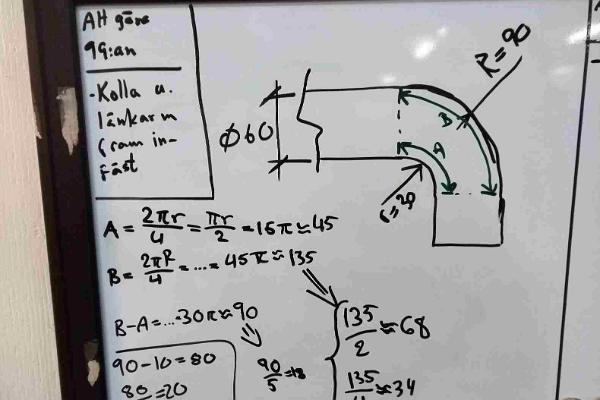 Att göra
99:an
- Kolla u.
länkarm
fram in-
fäst
Ø60
R=90
B
A
r=30
A = 2πr/4 = πr/2 = 15π ≈ 45
B = 2πR/4 = ... = 45π ≈ 135
B-A = ... 30π ≈ 90
90-10=80
80 =20
90/5 = 18
135/2 ≈ 68
135/4 ≈ 34